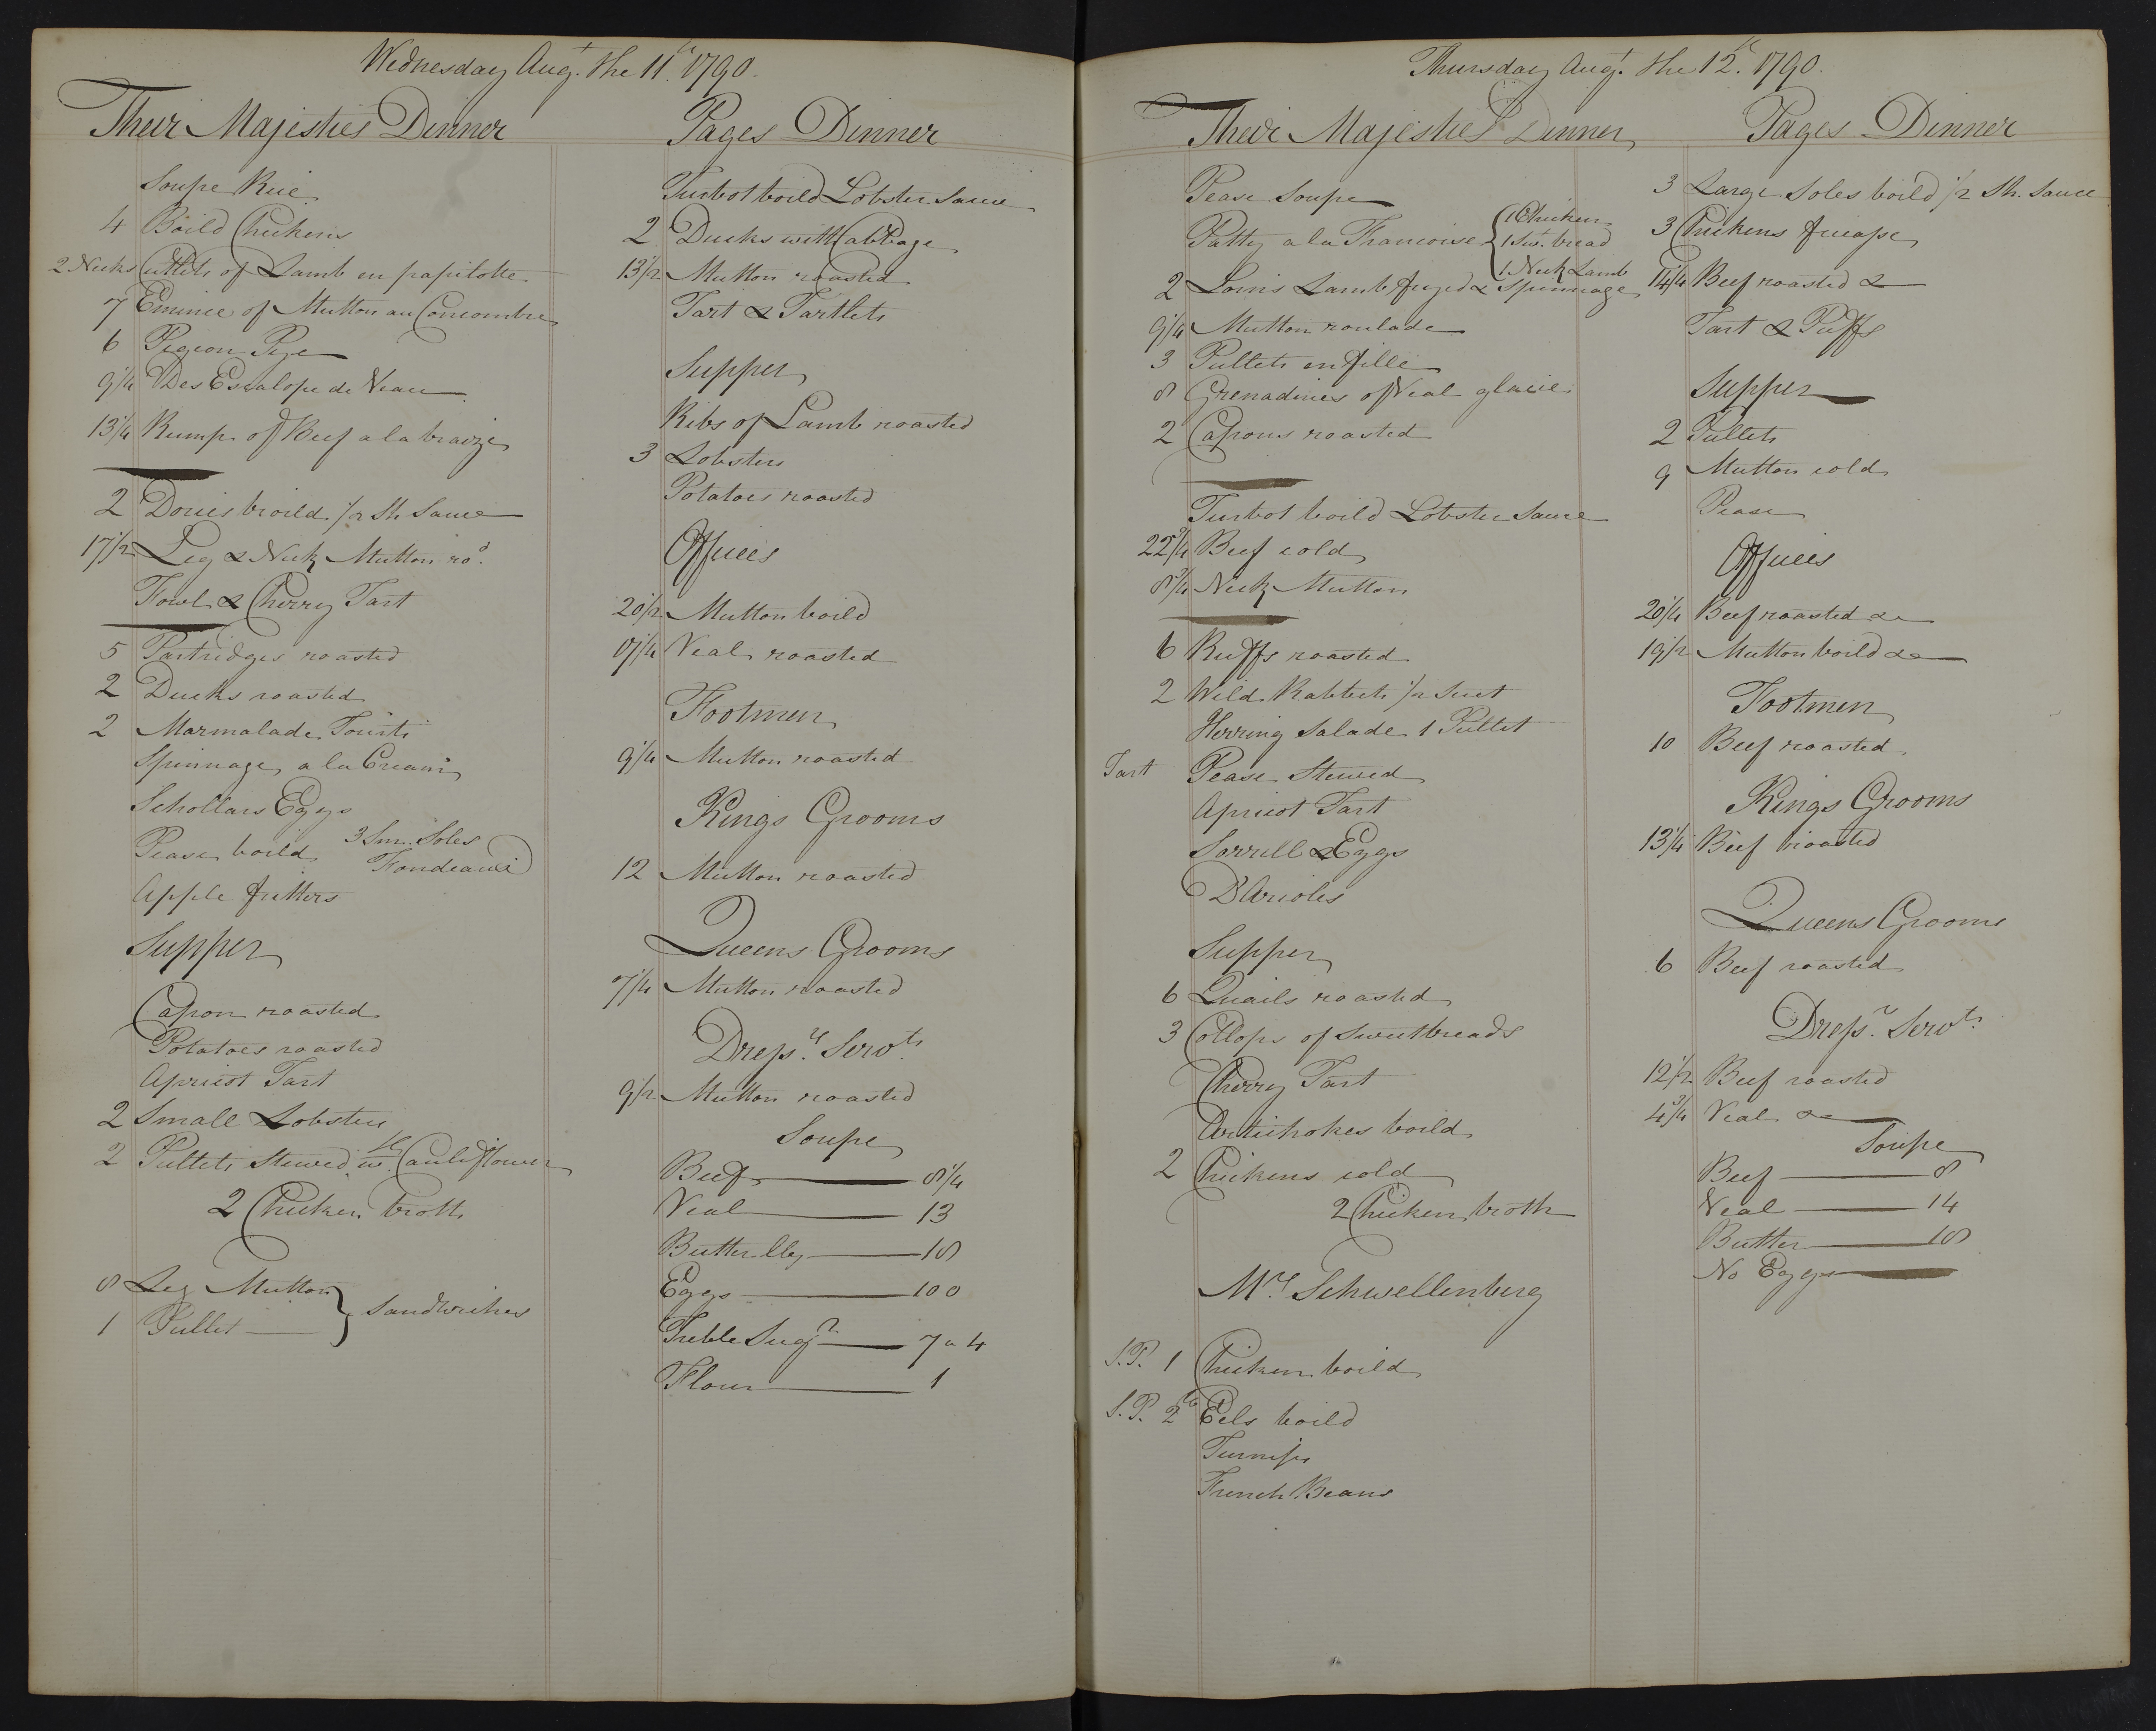 Wednesday Augt. the 11th. 1790.
Their Majesties Dinner
Soupe Rice
4 Boild Chickens
2 Necks Cutlets of Lamb en papilotte
7 Emince of Mutton au Concombre
6 Pigeon Pye
9 1/4 Des Escalope de Veau
13 1/4 Rump of Beef a la braize
2 Dories broild 1/2 Sh. Sauce
17 1/2 Leg & Neck Mutton rod.
Fowl & Cherry Tart
5 Partridges roasted
2 Ducks roasted
2 Marmalade Tourts
Spinnage a la Cream
Schollars Eggs
Pease boild 3 Sm. Soles
Apple fritters
Supper
Capon roasted
Potatoes roasted
Apricot Tart
2 Small Lobsters
2 Pullets Stewed wth. Cauliflower
2 Chicken broth
8 Leg Mutton } Sandwiches
1 Pullet
Pages Dinner
Turbot boild Lobster Sauce
2 Ducks with Cabbage
13 1/2 Mutton roasted
Tart & Tartlets
Supper
Ribs of Lamb roasted
3 Lobsters
Potatoes roasted
Offices
20 1/2 Mutton boild
17 1/4 Veal roasted
Footmen
9 1/4 Mutton roasted
Kings Grooms
12 Mutton roasted
Queens Grooms
7 1/4 Mutton roasted
Dressrs. Servts.
9 1/2 Mutton roasted
Soupe
Beef 8 1/4
Veal 13
Butter 18
Eggs 100
Treble Sugr 7 " 4
Flour 1
Thursday Augt. the 12th. 1790.
Their Majesties Dinner
Pease Soupe
Patty a la Francoise { 1 Chicken
1 Swt. bread
1 Neck Lamb
2 Loins Lamb fryed & Spinnage
9 1/4 Mutton roulade
3 Pullets en fille
8 Grenadines of Veal glacie
2 Capons roasted
Turbot boild Lobster Sauce
22 3/4 Beef cold
8 3/4 Neck Mutton
6 Ruffs roasted
2 Wild Rabbets 1/2 Suet
Herring Salade 1 Pullet
Tart Pease Stewed
Apricot Tart
Sorrell & Eggs
D'Arioles
Supper
6 Quails roasted
3 Collops of Sweetbreads
Cherry Tart
Artichokes boild
2 Chickens cold
2 Chicken broth
Mrs. Schwellenberg
S.P. 1 Chicken boild
S.P. 2lb Eels boild
Turnips
French Beans
Pages Dinner
3 Large Soles boild 1/2 Sh. Sauce
3 Chickens fricasse
14 1/4 Beef roasted &
Tart & Puffs
Supper
2 Pullets
9 Mutton cold
Pease
Offices
20 1/4 Beef roasted &c
19 1/2 Mutton boild &c
Footmen
10 Beef roasted
Kings Grooms
13 1/4 Beef roasted
Queens Grooms
6 Beef roasted
Dressr. Servts.
12 1/2 Beef roasted
4 3/4 Veal &c
Soupe
Beef 8
Veal 14
Butter 18
No Eggs